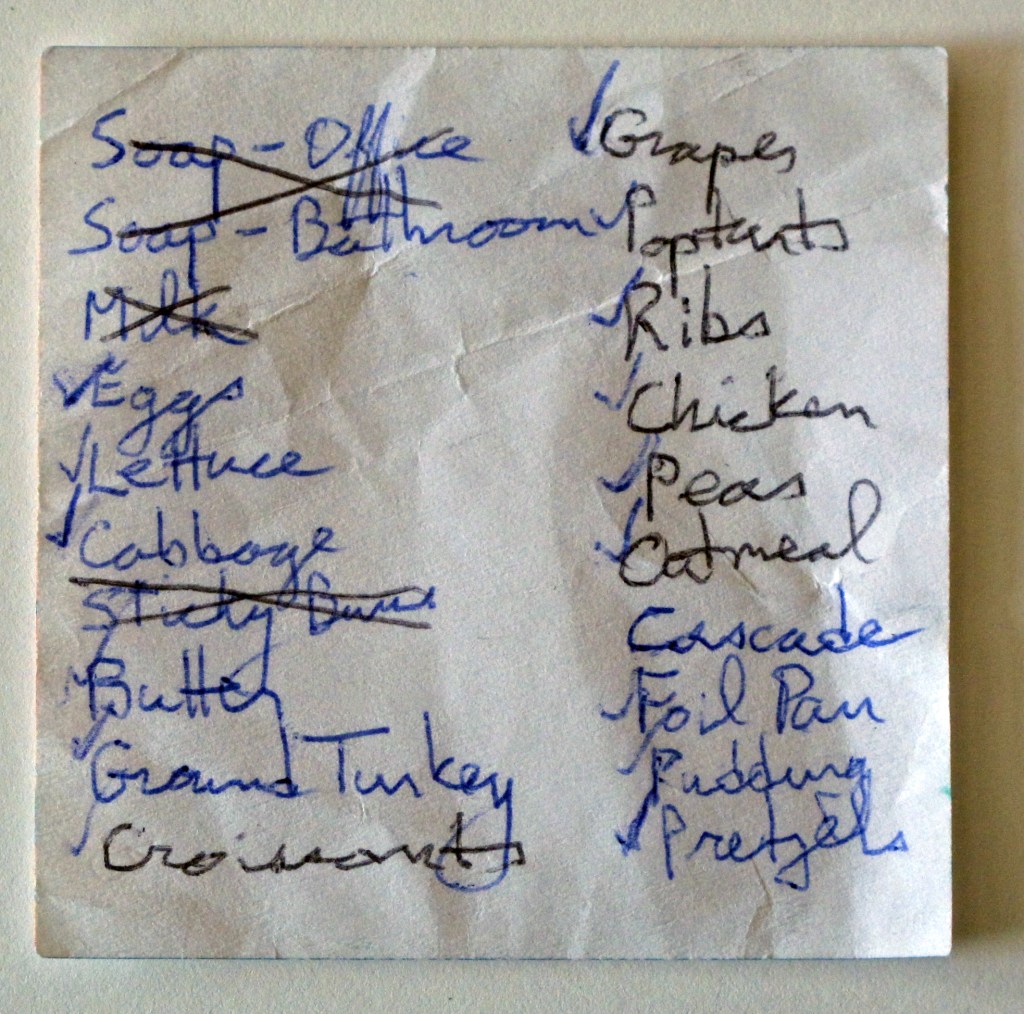 Soap - Office
Soap - Bathroom
Milk
Eggs
Lettuce
Cabbage
Sticky Buns
Butter
Ground Turkey
Croissants
Grapes
Poptarts
Ribs
Chicken
Peas
Oatmeal
Cascade
Foil Pan
Pudding
Pretzels